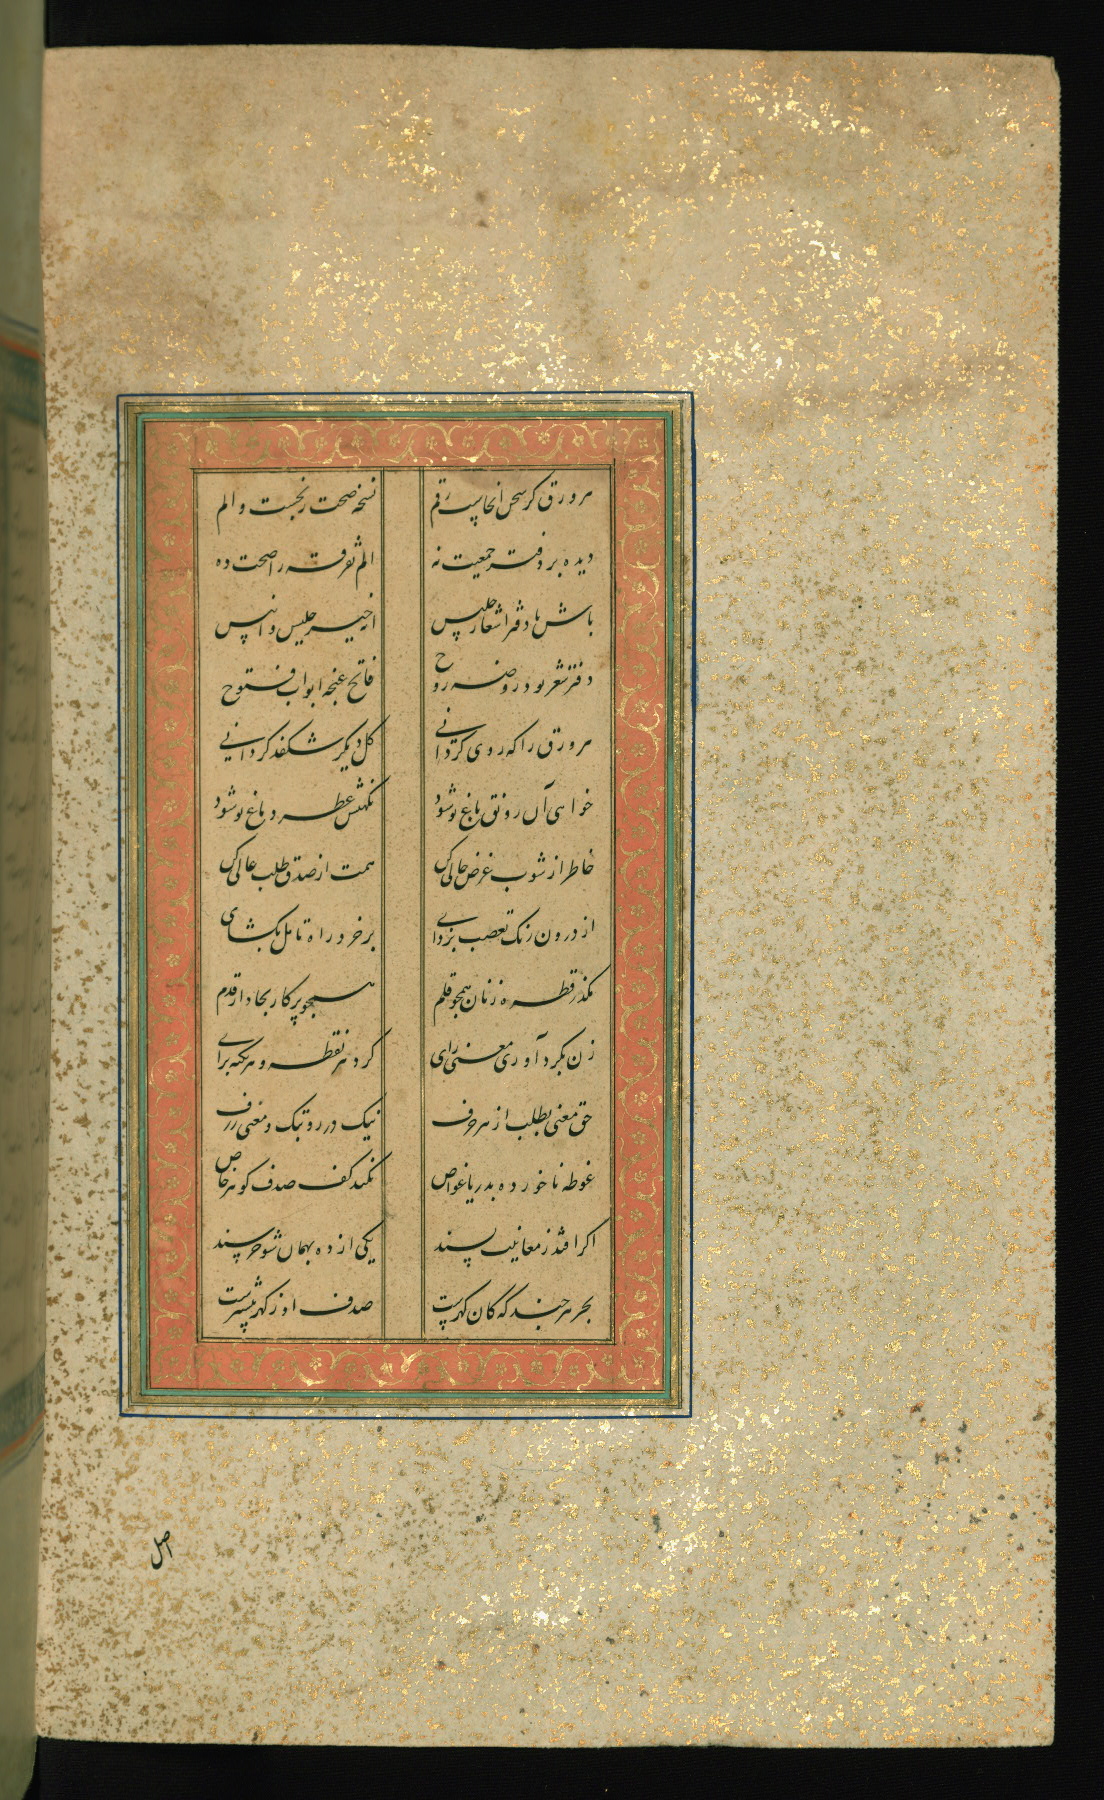 هر ورق کز سخن انجاست رقم نسخه صحت رنجست و الم
دیده بر دفتر جمعیت نه الم تفرقه را صحت ده
باش با دفتر اشعار جلیس انه خیر جلیس و انیس
دفتر شعر بود روضه روح فاتح غنچه ابواب فتوح
هر ورق را که روی گردانی گل دیگر شکفد گر دانی
خواهی آن رونق باغ تو شود نکهتش عطر دماغ تو شود
خاطر از شوب غرض خالی کن همت از صدق طلب عالی کن
از درون زنگ تعصب بزدای بر خرد راه تامل بگشای
مگذر قطره زنان همچو قلم همچو پرگار بجا دار قدم
زن بگرد آوری معنی رای گرد هر نقطه و هر نکته برای
حق معنی بطلب از هر حرف نیک در رو تنک و معنی ژرف
غوطه ناخورده بدریا غواص نکند کف صدف گوهر خاص
اگر افتد ز معانیت پسند یکی از ده بهمان شو خرسند
بحر هر چند که کان گهرست صدف او ز گهر بیشترست
اصل